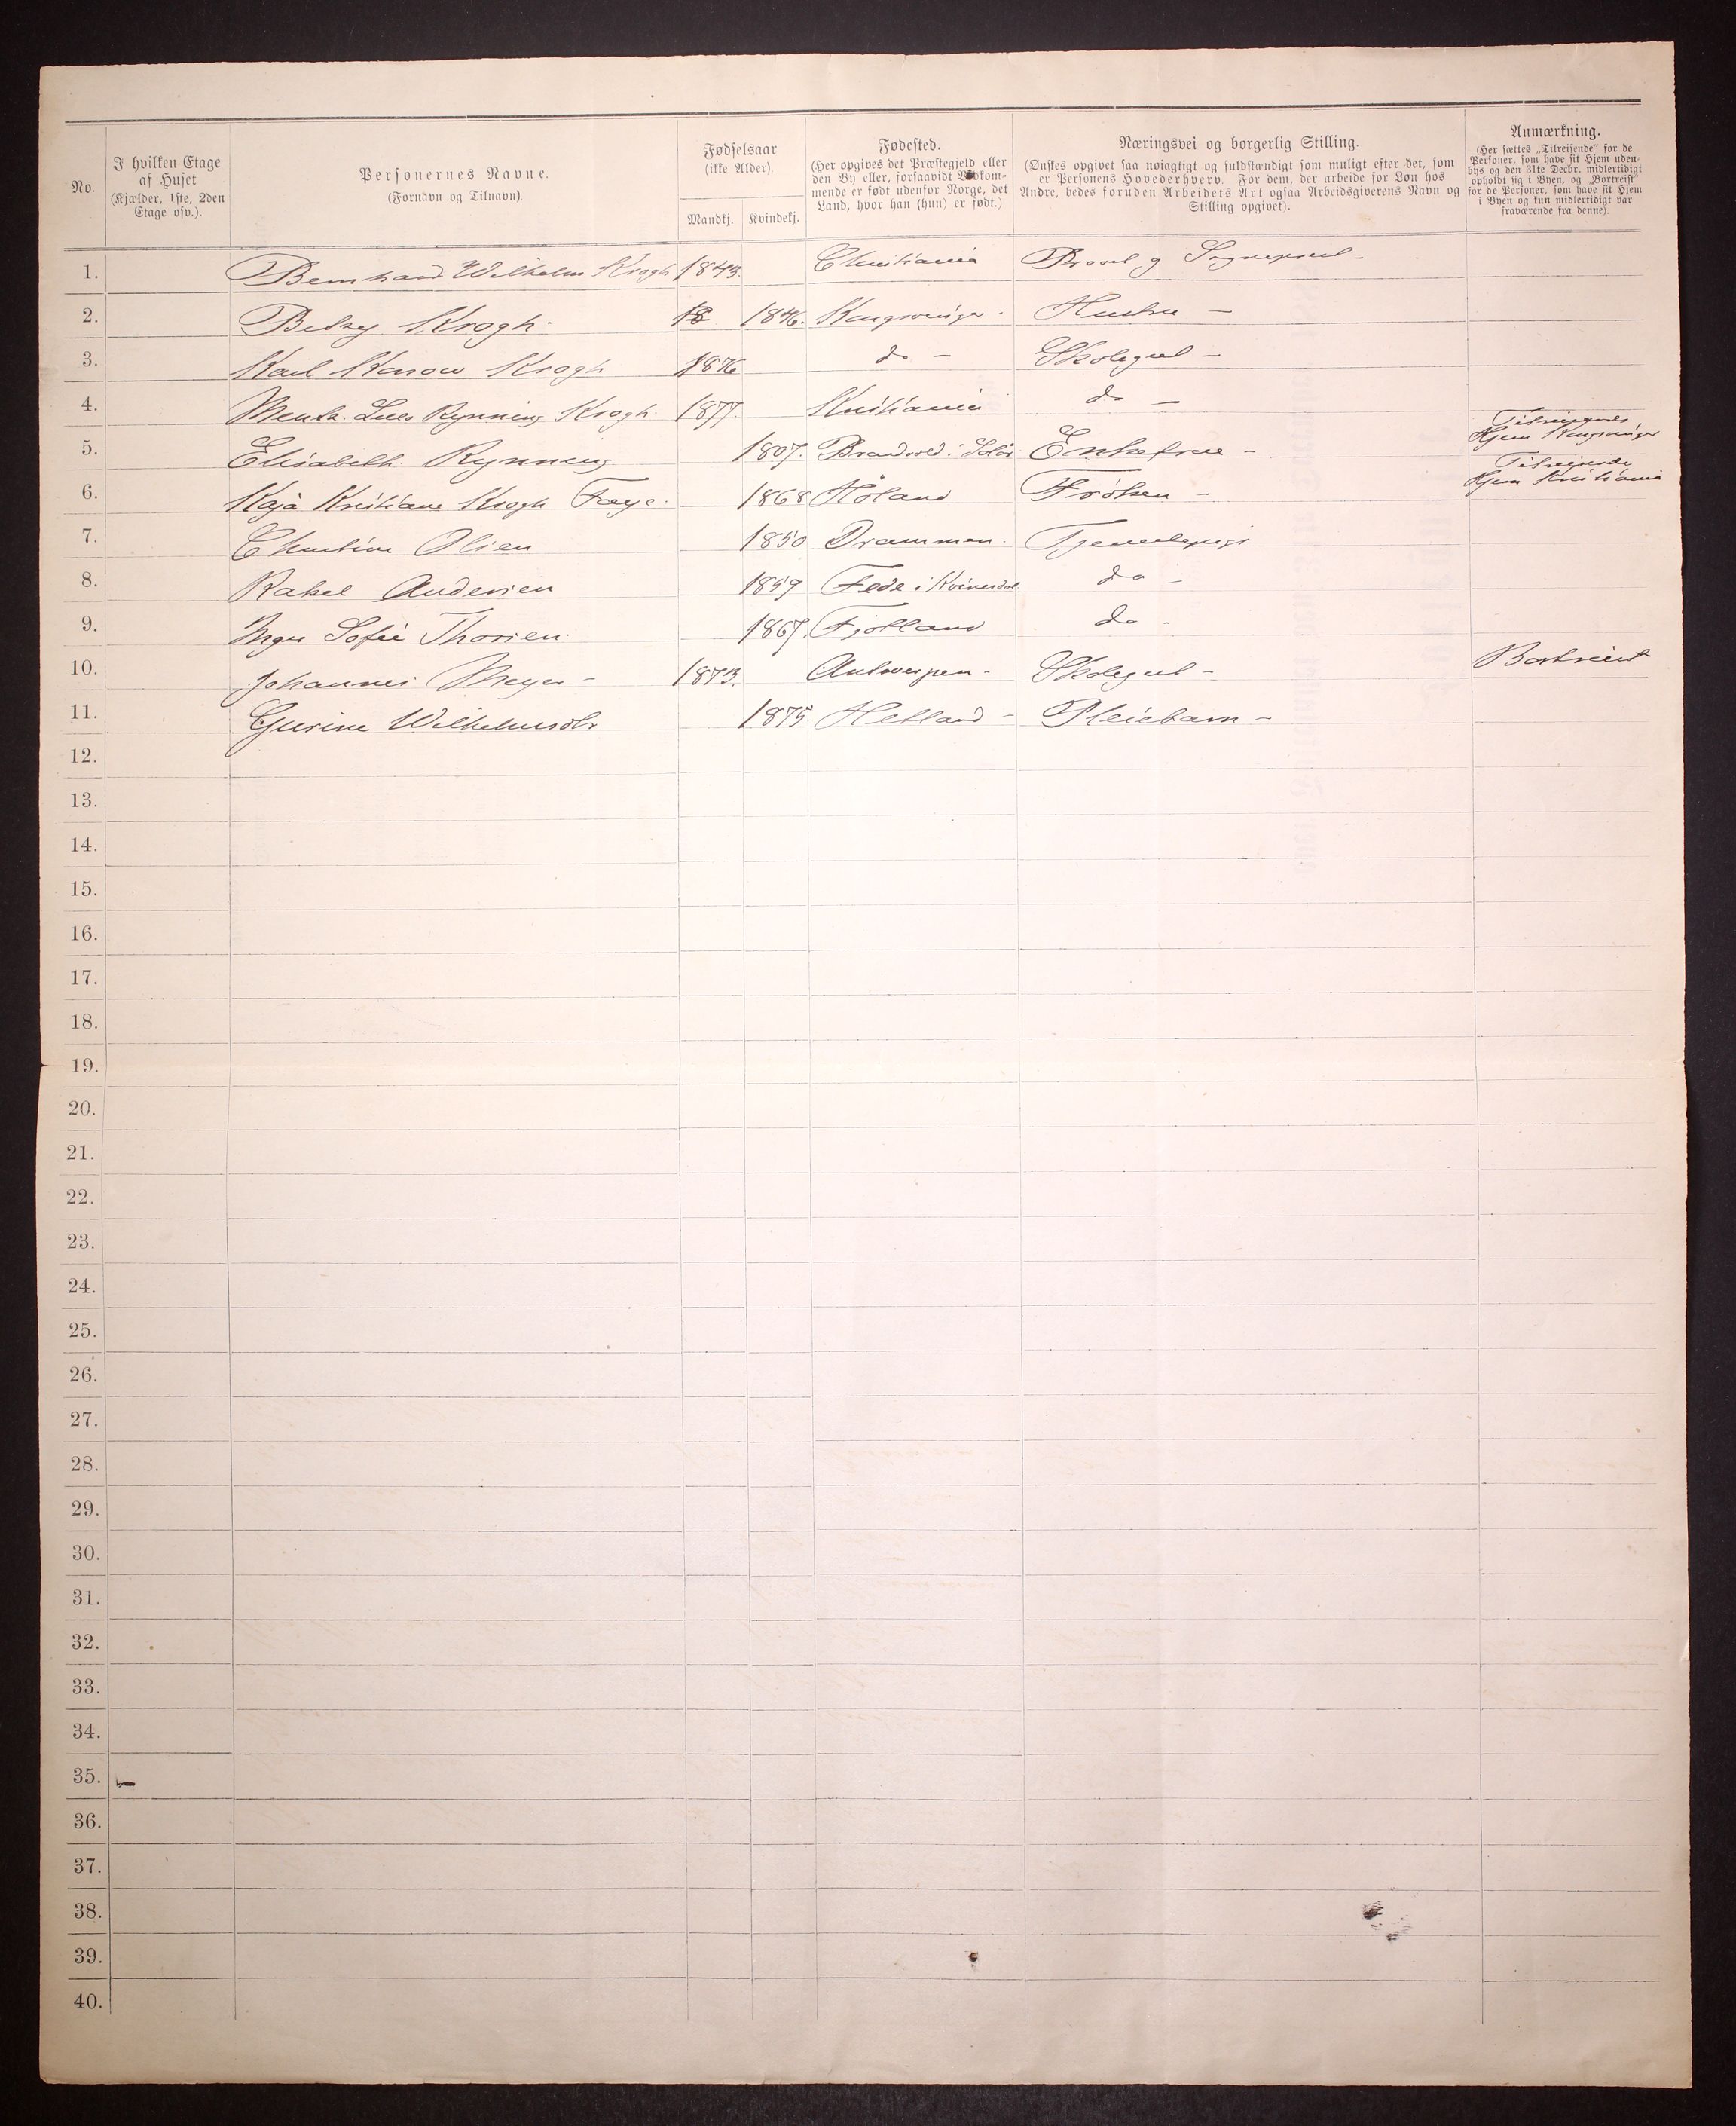 No.
I hvilken Etage af Huset (Kjælder, 1ste, 2den Etage osv.).
Personernes Navne. (Fornavn og Tilnavn).
Fødselsaar (ikke Alder)
Mandkj. Kvindekj.
Fødested. (Her opgives det Præstegjeld eller den By eller, forsaavidt Vedkommende er født udenfor Norge, det Land, hvor han (hun) er født.)
Næringsvei og borgerlig Stilling. (Ønskes opgivet saa nøiagtigt og fuldstændigt som muligt efter det, som er Personens Hovederhverv. For dem, der arbeide for Løn hos Andre, bedes foruden Arbeidets Art ogsaa Arbeidsgiverens Navn og Stilling opgivet).
Anmærkning. (Her sættes „Tilreisende“ for de Personer, som have sit Hjem udenbys og den 31te Decbr. midlertidigt opholdt sig i Byen, og „Bortreist“ for de Personer, som have sit Hjem i Byen og kun midlertidigt var fraværende fra denne).
1. Bernhard Wilhelm Krogh 1843. Christiania Provst og Sognepræst -
2. Betzy Krogh. 18 1846. Kongsvinger. Hustru -
3. Karl Krogh 1876 do - Skolegut -
4. Rynning Krogh. 1877. Kristiania do -
5. Elisabeth Rynning 1807. Brandvold i Solør Enkefrue - Tilreisende Hjem Kongsvinger
6. Kaja Kristiane Krogh Faye. 1868 Höland Fröken - Tilreisende Hjem Kristiania
7. Christine Olsen 1850 Drammen. Tjenestepige
8. Rakel Andersen 1859 Fede i Kvinesdal do -
9. Inger Sofie Thorsen. 1867. Fjotland do -
10. Johannes Meyer - 1873. Antwerpen - Skolegut - Bortreist
11. Gurine Wilhelmsdtr 1875. Hetland - Pleiebarn -
12.
13.
14.
15.
16.
17.
18.
19.
20.
21.
22.
23.
24.
25.
26.
27.
28.
29.
30.
31.
32.
33.
34.
35.
36.
37.
38.
39.
40.